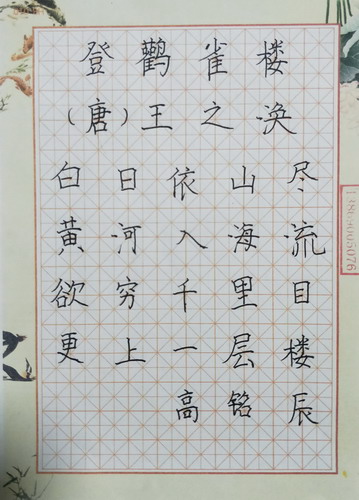 登鹳雀楼
（唐）王之涣
白日依山尽
黄河入海流
欲穷千里目
更上一层楼
高铭辰